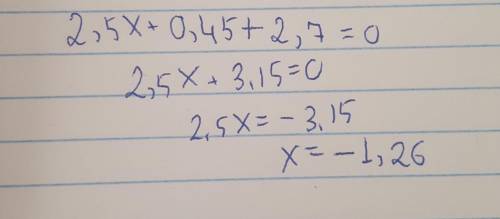 2,5x + 0,45 + 2,7 = 0
2,5x + 3,15 = 0
2,5x = - 3,15
x = - 1,26